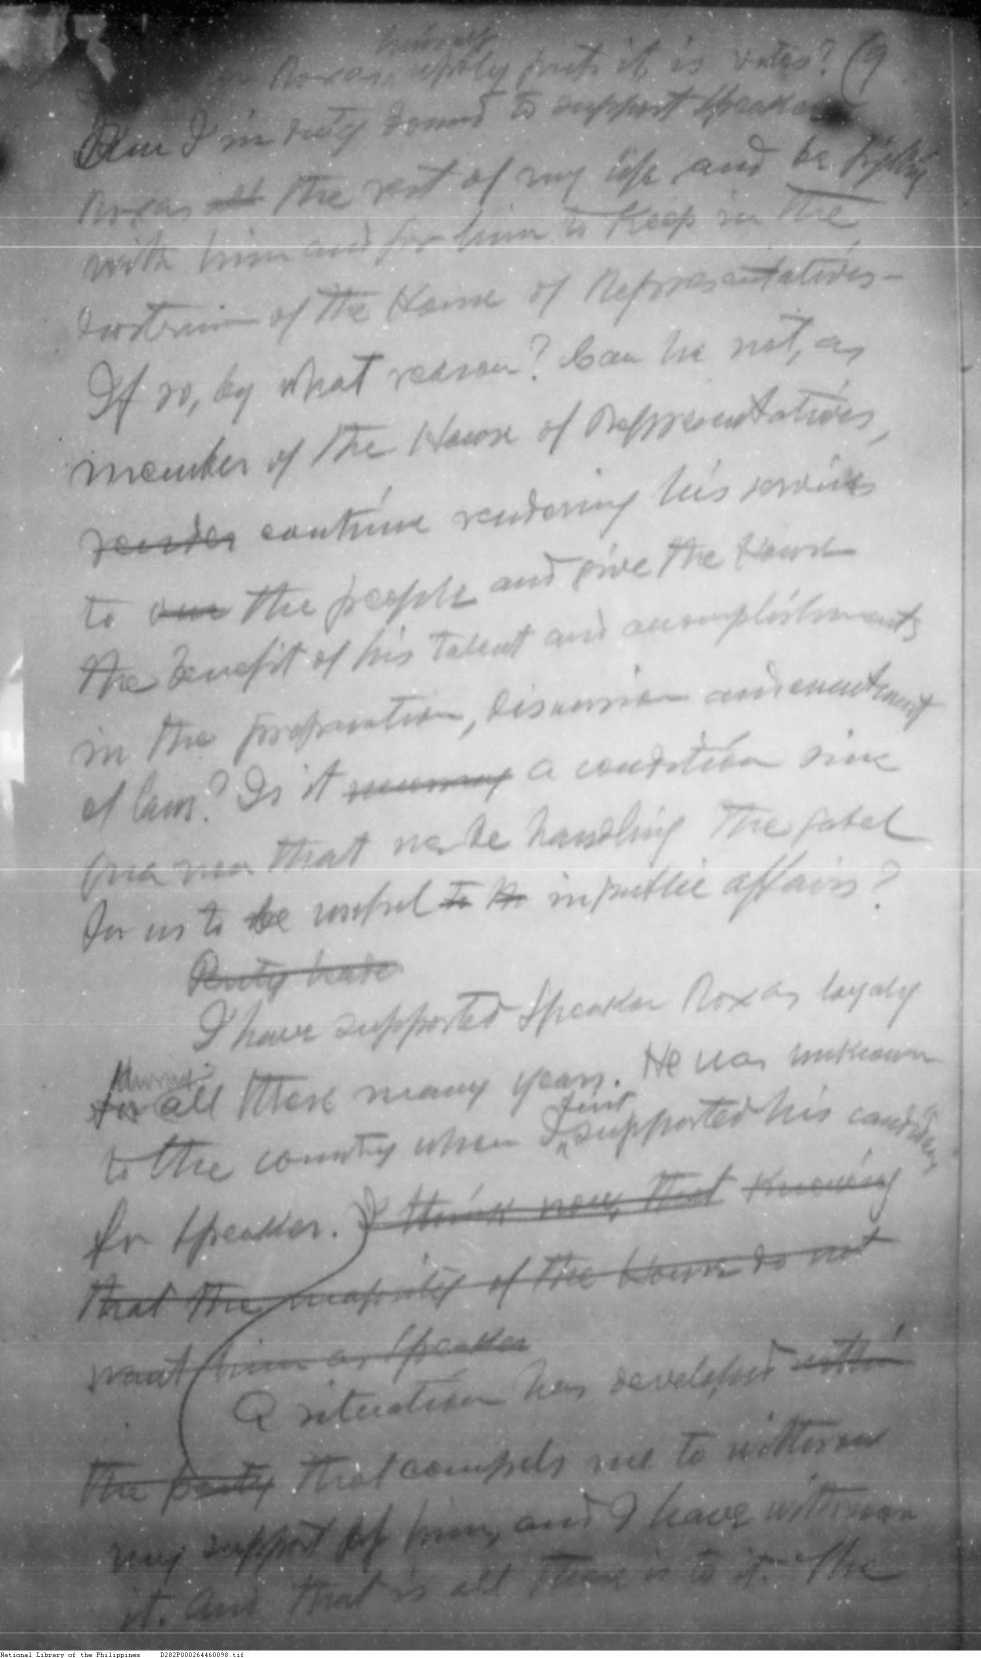 Roxas, aptly puts it, is votes? (9
Am I in duty bound to support Speaker
Roxas all the rest of my life and be fighting
with him and for him to keep in the
rostrum of the House of Representatives—
If so, by what reason? Can he not, as
member of the House of Representatives,
render continue rendering his services
to our the people and give the House
the benefit of his talent and accomplishments
in the preparation, discussion and enactment
of laws? Is it necessary a condition sine
qua non that we be handling the gavel
for us to be useful to the in public affairs?
Party hate
I have supported Speaker Roxas loyally
during
for all these many years. He was unknown
first
to the country when I supported his candidacy
for Speaker. I think now, that knowing
that the majority of the House do not
want him as Speaker
A situation has developed within
the party that compels me to withdraw
my support of him, and I have withdrawn
it. And that is all there is to it. The
National Library of the Philippines D282P000264460098.tif